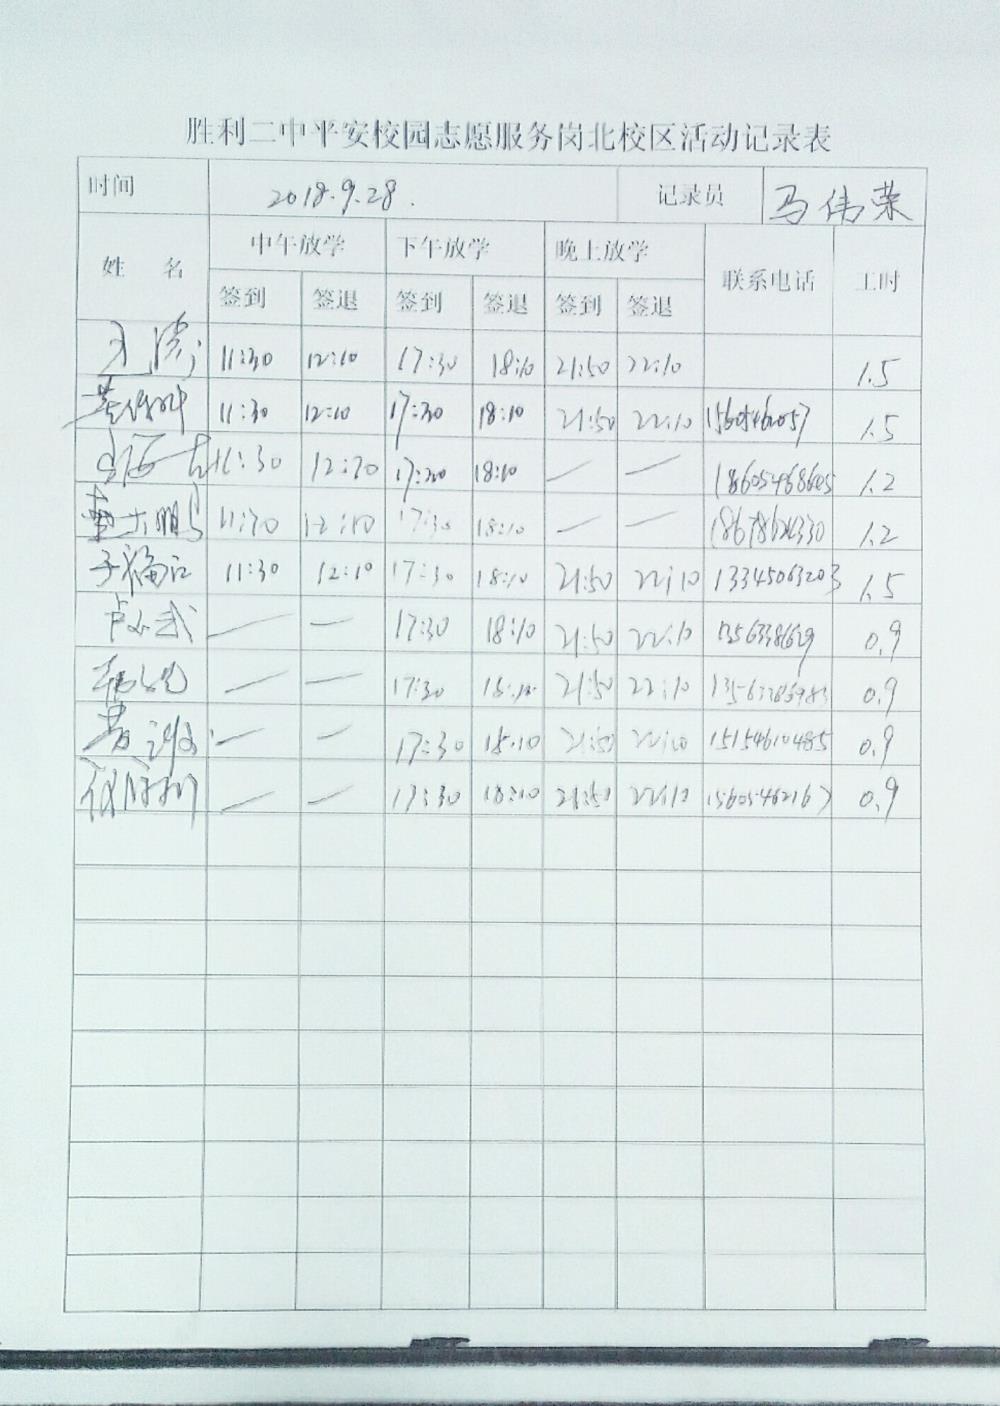 胜利二中平安校园志愿服务岗北校区活动记录表
时间 2018.9.28. 记录员 马伟荣
姓 名 中午放学 下午放学 晚上放学 联系电话 工时
签到 签退 签到 签退 签到 签退
11:30 12:10 17:30 18:10 21:50 22:10 1.5
11:30 12:10 17:30 18:10 21:50 22:10 1.5
11:30 17:30 18:10 — — 18605468605 1.2
17:30 18:10 — — 1.2
于福江 11:30 12:10 17:30 18:10 21:50 22:10 13345063203 1.5
— — 17:30 18:10 21:50 22:10 0.9
— — 17:30 18:10 21:50 22:10 0.9
— — 17:30 18:10 21:50 22:10 15154610485 0.9
— — 17:30 18:10 21:50 22:10 15605462167 0.9